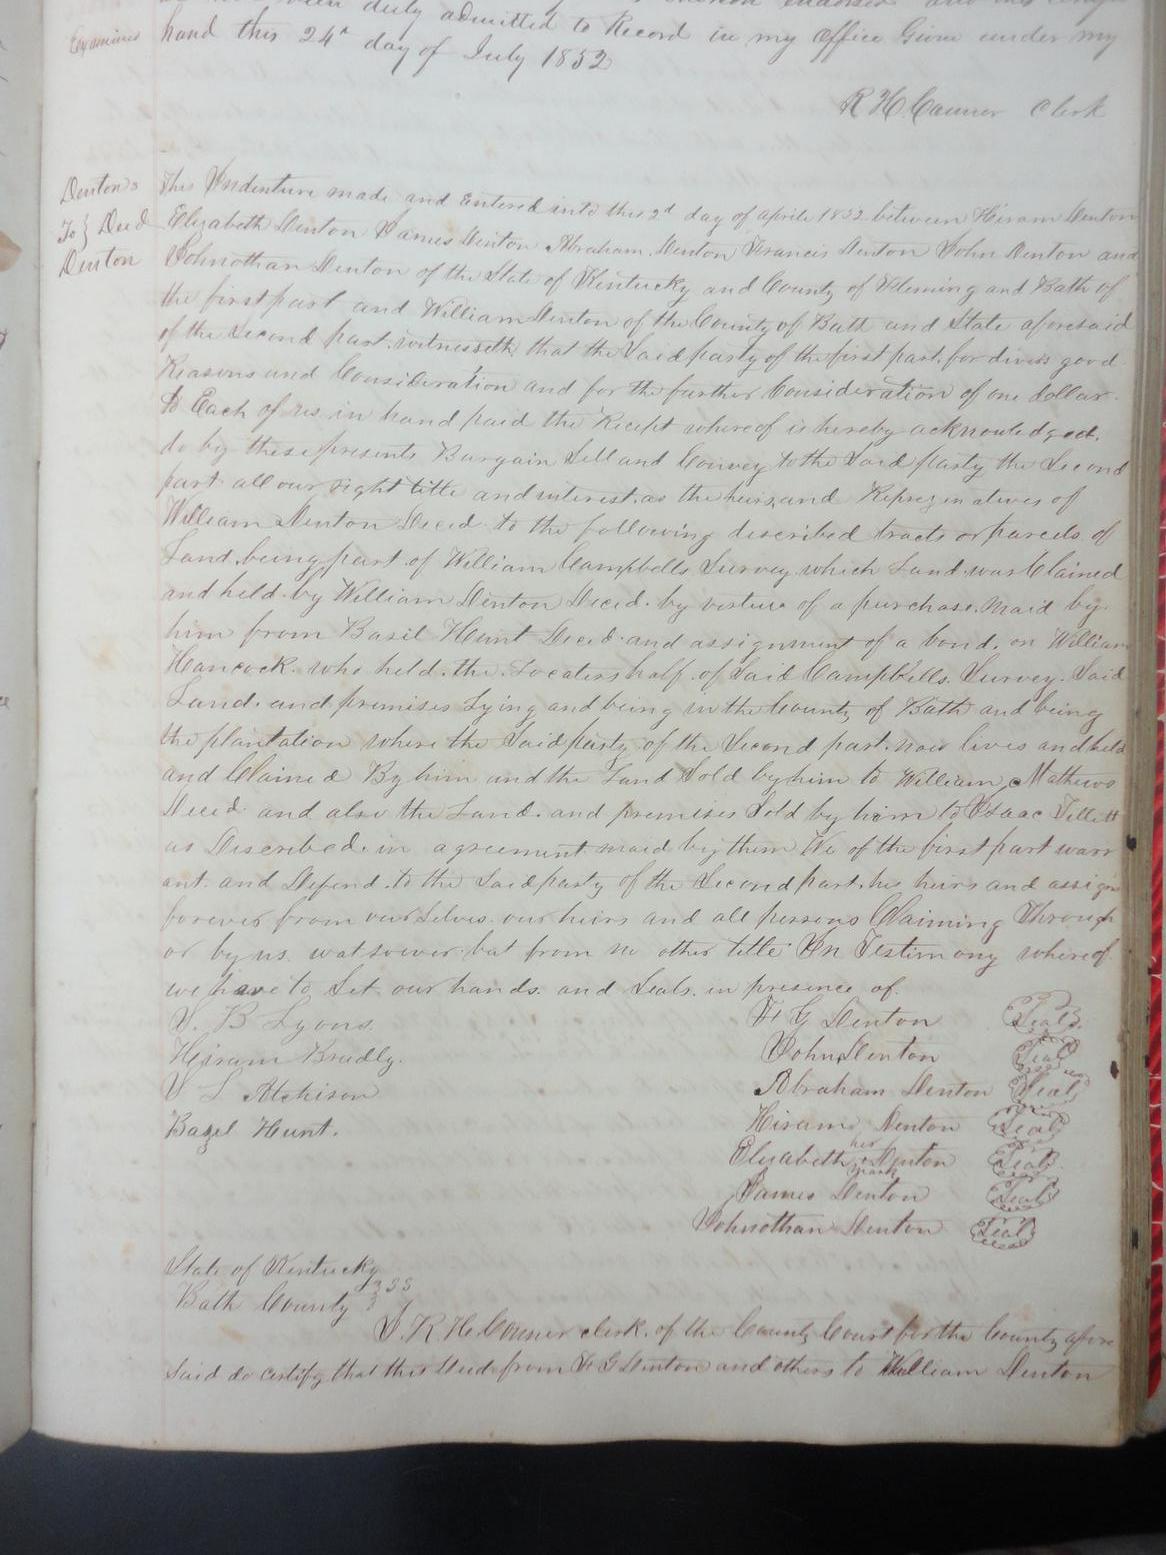 been duly admitted to Record in my office Given under my
Examined
hand this 24th day of July 1852
R H Conner Clerk
Dentons
To } Deed
Denton
This Indenture made and Entered into this 2d day of aprile 1852 between Hiram Denton
Elizabeth Denton James Denton Abraham Denton Francis Denton John Denton and
Johnothan Denton of the State of Kentucky and County of Fleming and Bath of
the first part and William Denton of the County of Bath and State aforesaid
of the Second part witnesseth that the Said party of the first part for divers good
Reasons and Consideration and for the further Consideration of one dollar
to Each of us in hand paid the Recept whereof is hereby acknowledged
do by these presents Bargain Sell and Convey to the Said party the Second
part all our right title and interest as the heirs and Reprezenatives of
William Denton Deced to the following discribed tracts or parcels of
Land being part of William Campbells Survey which Land was Claimed
and held by William Denton Deced by vertue of a purchase maid by
him from Basil Hunt Deced and assignment of a bond on William
Hancock who held the Locaters half of Said Campbells Survey Said
Land and premises Lying and being in the County of Bath and being
the plantation where the Said party of the Second part now lives and held
and Claimed By him and the Land Sold by him to William Mathews
Deced and also the Land and premises Sold by him to Isaac Tillett
as Discribed in agreement maid by them We of the first part warr
ant and Defend to the Said party of the Second part his heirs and assigns
forever from ourselves our heirs and all persons Claiming Through
or by us watsoever but from no other title In Testimony whereof
we have to Set our hands and Seals in presence of
J. B Lyons F G Denton Seal
Hiram Bradly. John Denton Seal
J L Atchison Abraham Denton Seal
Bazel Hunt. Hiram Denton Seal
Elizabeth her mark Denton Seal
James Denton Seal
Johnothan Denton Seal
State of Kentucky
Bath County } SS
I. R H. Conner clerk of the County Court for the County afore
Said do certify that this Deed from F G Denton and others to William Denton